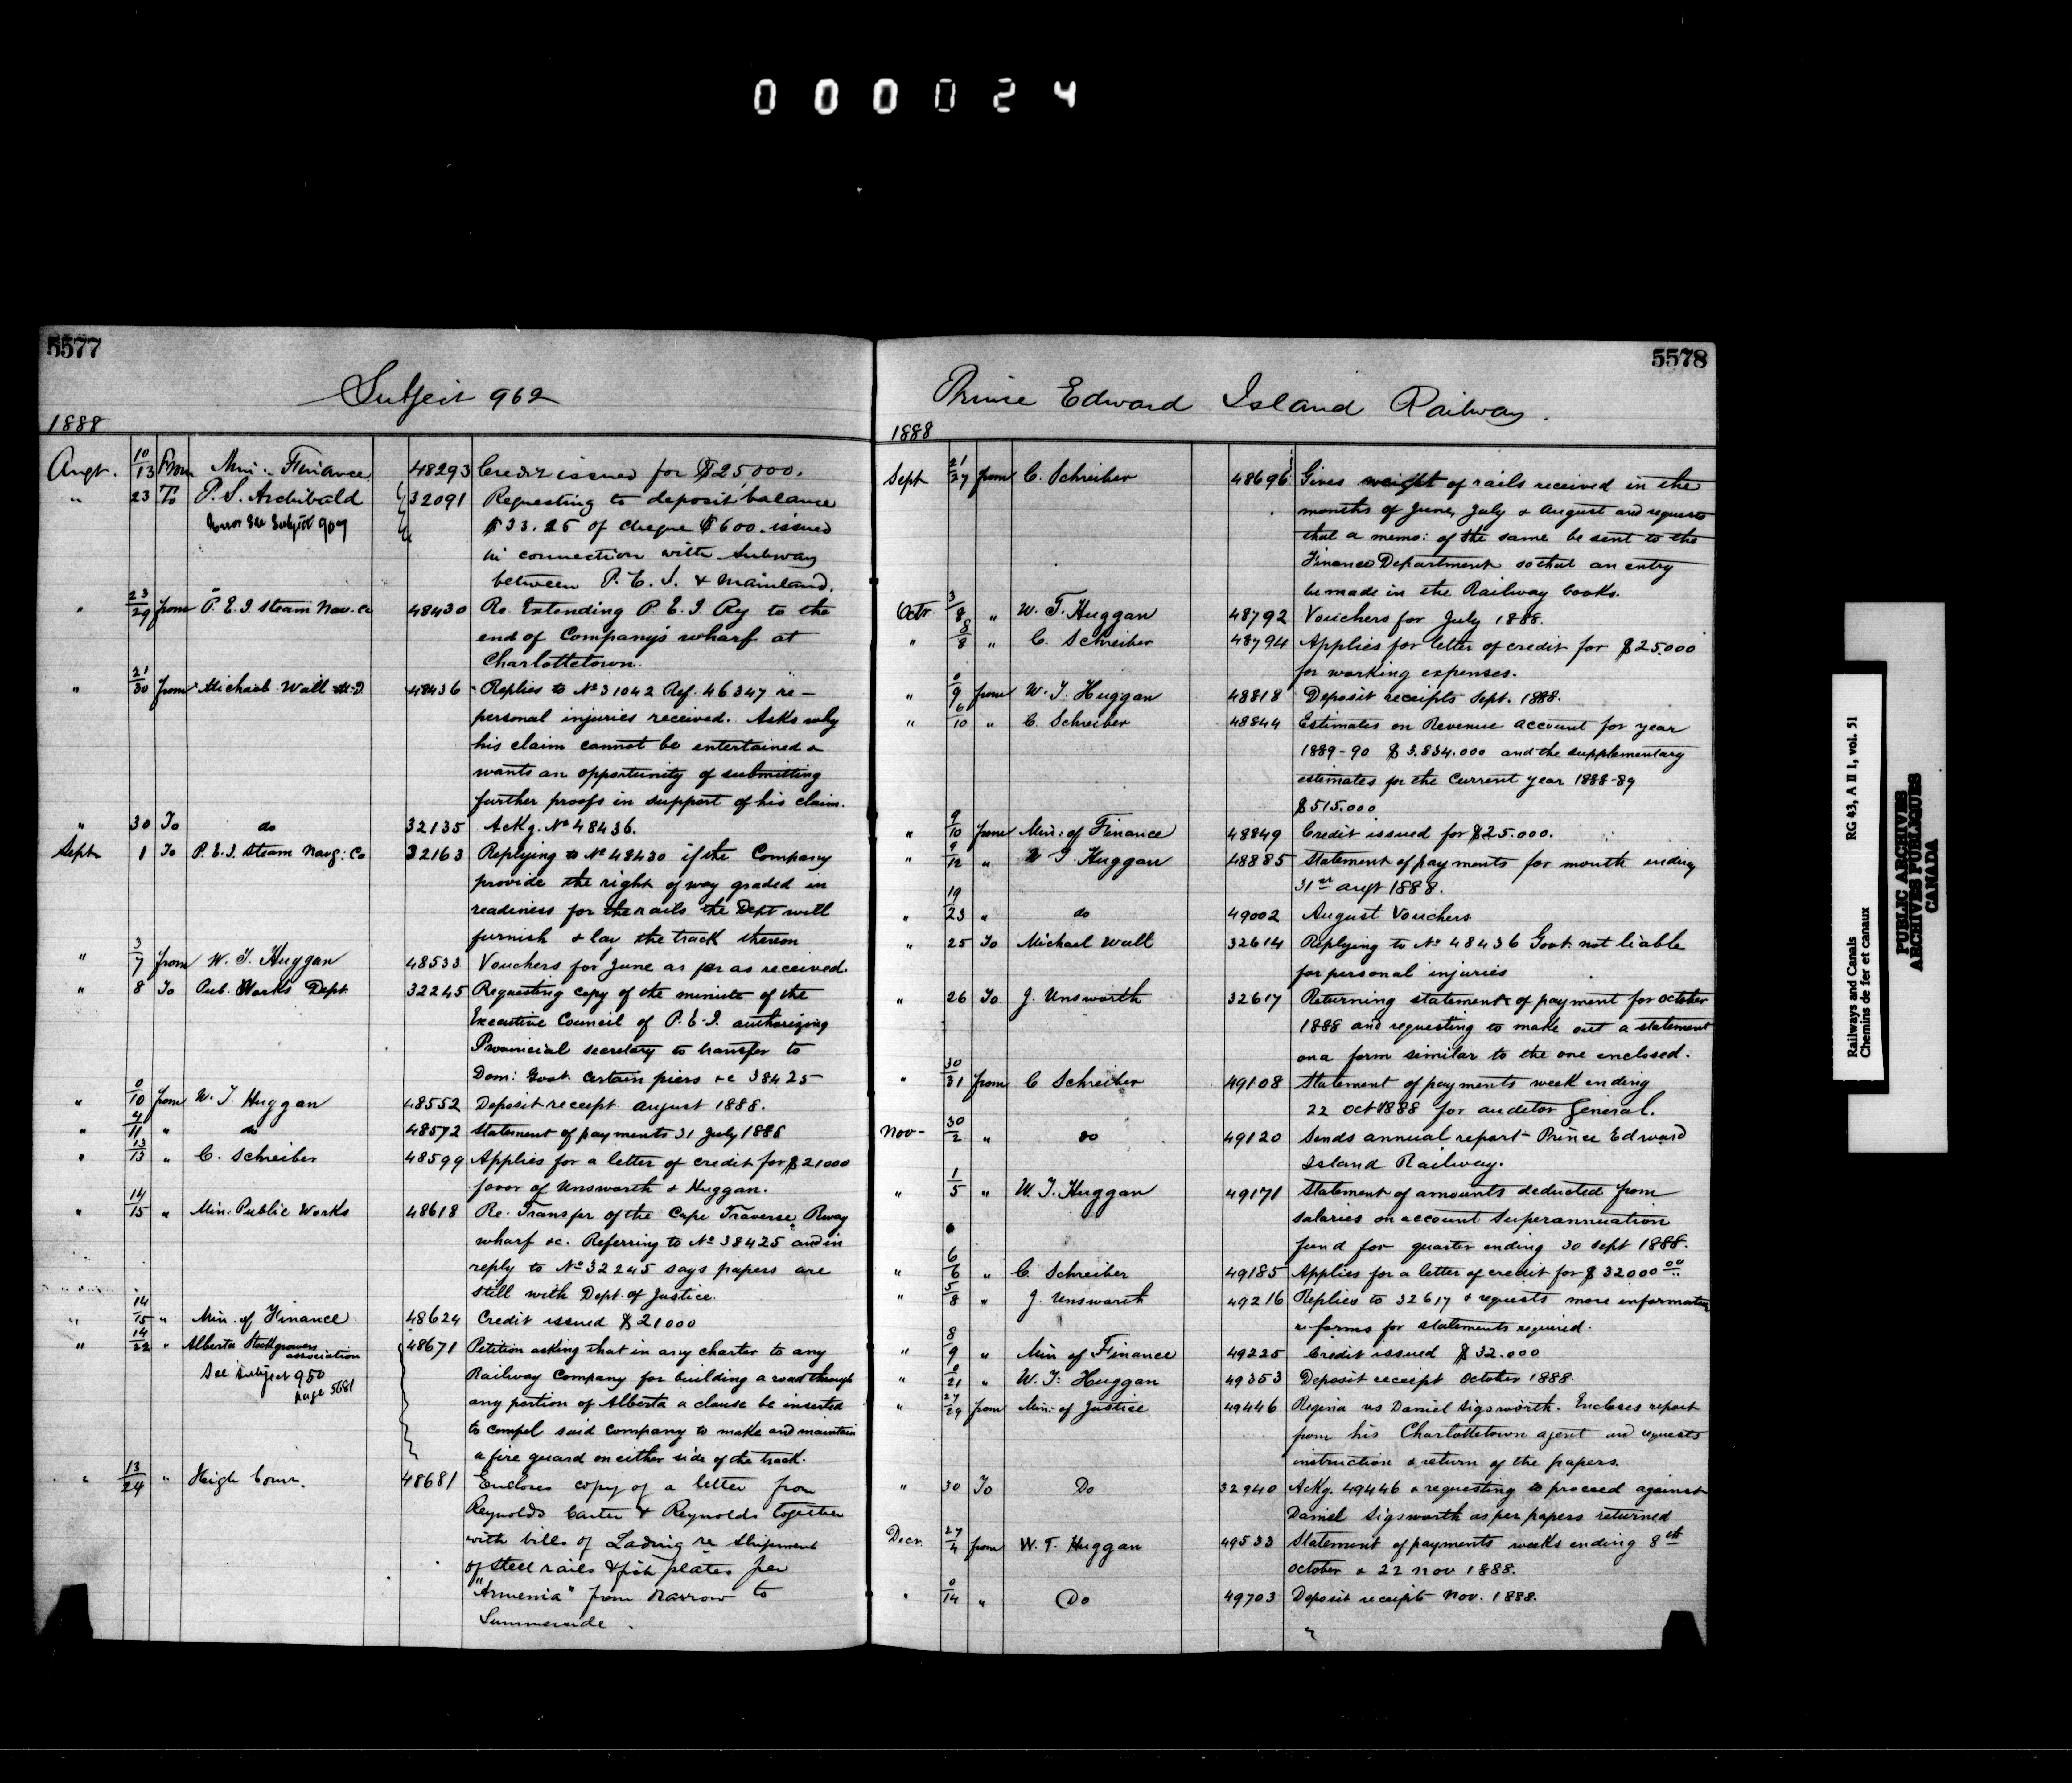 000024
5577
Subject 962
1888
Augt. 10/13 From Min. Finance 48293 Credit issued for $25,000.
" 23 To P. S. Archibald 32091 Requesting to deposit balance
See Subject 907 $33.25 of cheque $600. issued
in connection with Subway
between P. E. I. & Mainland.
" 23/29 from P. E. I. Steam Nav. Co 48430 Re Extending P. E. I. Ry to the
end of Company's wharf at
Charlottetown.
" 21/30 from Michael Wall 48436 Replies to No 31042 Ref. 46347 re –
personal injuries received. Asks why
his claim cannot be entertained &
wants an opportunity of submitting
further proofs in support of his claim.
" 30 To do 32135 Ackg. No 48436.
Sept 1 To P. E. I. Steam Navg: Co 32163 Replying to No 48430 if the Company
provide the right of way graded in
readiness for the rails the Dept will
furnish & lay the track thereon
" 3/7 from W. T. Huggan 48533 Vouchers for June as far as received.
" 8 To Pub. Works Dept 32245 Requesting copy of the minute of the
Executive Council of P. E. I. authorizing
Provincial secretary to transfer to
Dom: Govt. certain piers &c 38425
" 0/10 from W. T. Huggan 48552 Deposit receipt August 1888.
" 4/11 " do 48572 Statement of payments 31 July 1888
" 13/13 " C. Schreiber 48599 Applies for a letter of credit for $21000
favor of Unsworth & Huggan.
" 14/15 " Min. Public Works 48618 Re. Transfer of the Cape Traverse Rway
wharf &c. Referring to No 38425 and in
reply to No 32245 says papers are
still with Dept. of Justice.
" 14/15 " Min. of Finance 48624 Credit issued $21000
" 14/22 " Alberta Stockgrowers association 48671 Petition asking that in any charter to any
See Subject 950 Railway Company for building a road through
page 5681 any portion of Alberta a clause be inserted
to compel said Company to make and maintain
a fire guard on either side of the track.
" 13/24 " High Comr. 48681 Encloses copy of a letter from
Reynolds Carter & Reynolds together
with bills of Lading re Shipment
of steel rails & fish plates per
"Armenia" from Barrow to
Summerside.
5578
Prince Edward Island Railway.
1888
Sept 21/27 from C. Schreiber 48696 Gives weight of rails received in the
months of June, July & August and requests
that a memo: of the same be sent to the
Finance Department so that an entry
be made in the Railway books.
Octr. 3/8 " W. T. Huggan 48792 Vouchers for July 1888.
" 8/8 " C. Schreiber 48794 Applies for letter of credit for $25.000
for working expenses.
" 0/9 from W. T. Huggan 48818 Deposit receipts Sept. 1888.
" 6/10 " C. Schreiber 48844 Estimates on Revenue account for year
1889-90 $3.834.000 and the supplementary
estimates for the current year 1888-89
$515.000
" 9/10 from Min: of Finance 48849 Credit issued for $25.000.
" 9/12 " W T. Huggan 48885 Statement of payments for month ending
31st augt 1888.
" 19/23 " do 49002 August Vouchers
" 25 To Michael Wall 32614 Replying to No 48436 Govt not liable
for personal injuries
" 26 To J. Unsworth 32617 Returning statement of payment for october
1888 and requesting to make out a statement
on a form similar to the one enclosed.
" 30/31 from C Schreiber 49108 Statement of payments week ending
22 oct 1888 for auditor General.
Nov– 30/2 " do 49120 Sends annual report – Prince Edward
Island Railway.
" 1/5 " W. T. Huggan 49171 Statement of amounts deducted from
salaries on account Superannuation
fund for quarter ending 30 Sept 1888.
" 6/6 " C. Schreiber 49185 Applies for a letter of credit for $32000.00
" 5/8 " J. Unsworth 49216 Replies to 32617 & requests more information
& forms for statements required.
" 8/9 " Min of Finance 49225 Credit issued $32.000
" 0/21 " W. T. Huggan 49353 Deposit receipt October 1888
" 27/29 from Min: of Justice 49446 Regina vs Daniel Sigsworth. Encloses report
from his Charlottetown agent and requests
instruction & return of the papers.
" 30 To Do 32940 Ackg. 49446 & requesting to proceed against
Daniel Sigsworth as per papers returned
Decr. 27/4 from W. T. Huggan 49533 Statement of payments weeks ending 8th
October & 22 Nov 1888.
" 0/14 " Do 49703 Deposit receipts Nov. 1888.
"
Railways and Canals RG 43, A II 1, vol. 51
Chemins de fer et canaux
PUBLIC ARCHIVES
ARCHIVES PUBLIQUES
CANADA